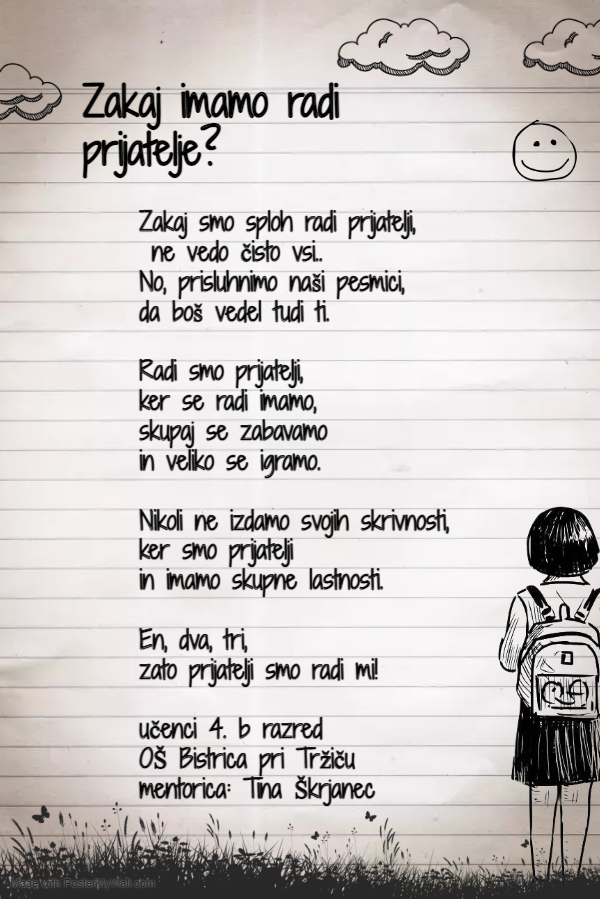 Zakaj imamo radi
prijatelje?
Zakaj smo sploh radi prijatelji,
ne vedo čisto vsi..
No, prisluhnimo naši pesmici,
da boš vedel tudi ti.
Radi smo prijatelji,
ker se radi imamo,
skupaj se zabavamo
in veliko se igramo.
Nikoli ne izdamo svojih skrivnosti,
ker smo prijatelji
in imamo skupne lastnosti.
En, dva, tri,
zato prijatelji smo radi mi!
učenci 4. b razred
OŠ Bistrica pri Tržiču
mentorica: Tina Škrjanec
Made with PosterMyWall.com